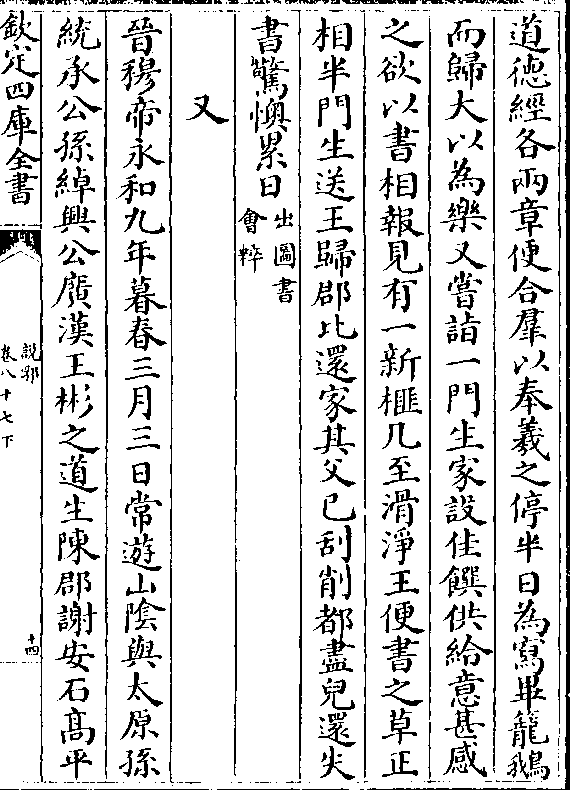 道德經各兩章便合羣以奉羲之停半日為寫畢籠鵝
而歸大以為樂又嘗詣一門生家設佳饌供給意甚感
之欲以書相報見有一新榧几至滑淨王便書之草正
相半門生送王歸郡比還家其父已刮削都盡兒還失
書驚懊累日
出圖書
會粹
又
晉穆帝永和九年暮春三月三日常遊山陰與太原孫
統承公孫綽興公廣漢王彬之道生陳郡謝安石高平
欽定四庫全書
說郛
卷八十七下
十四